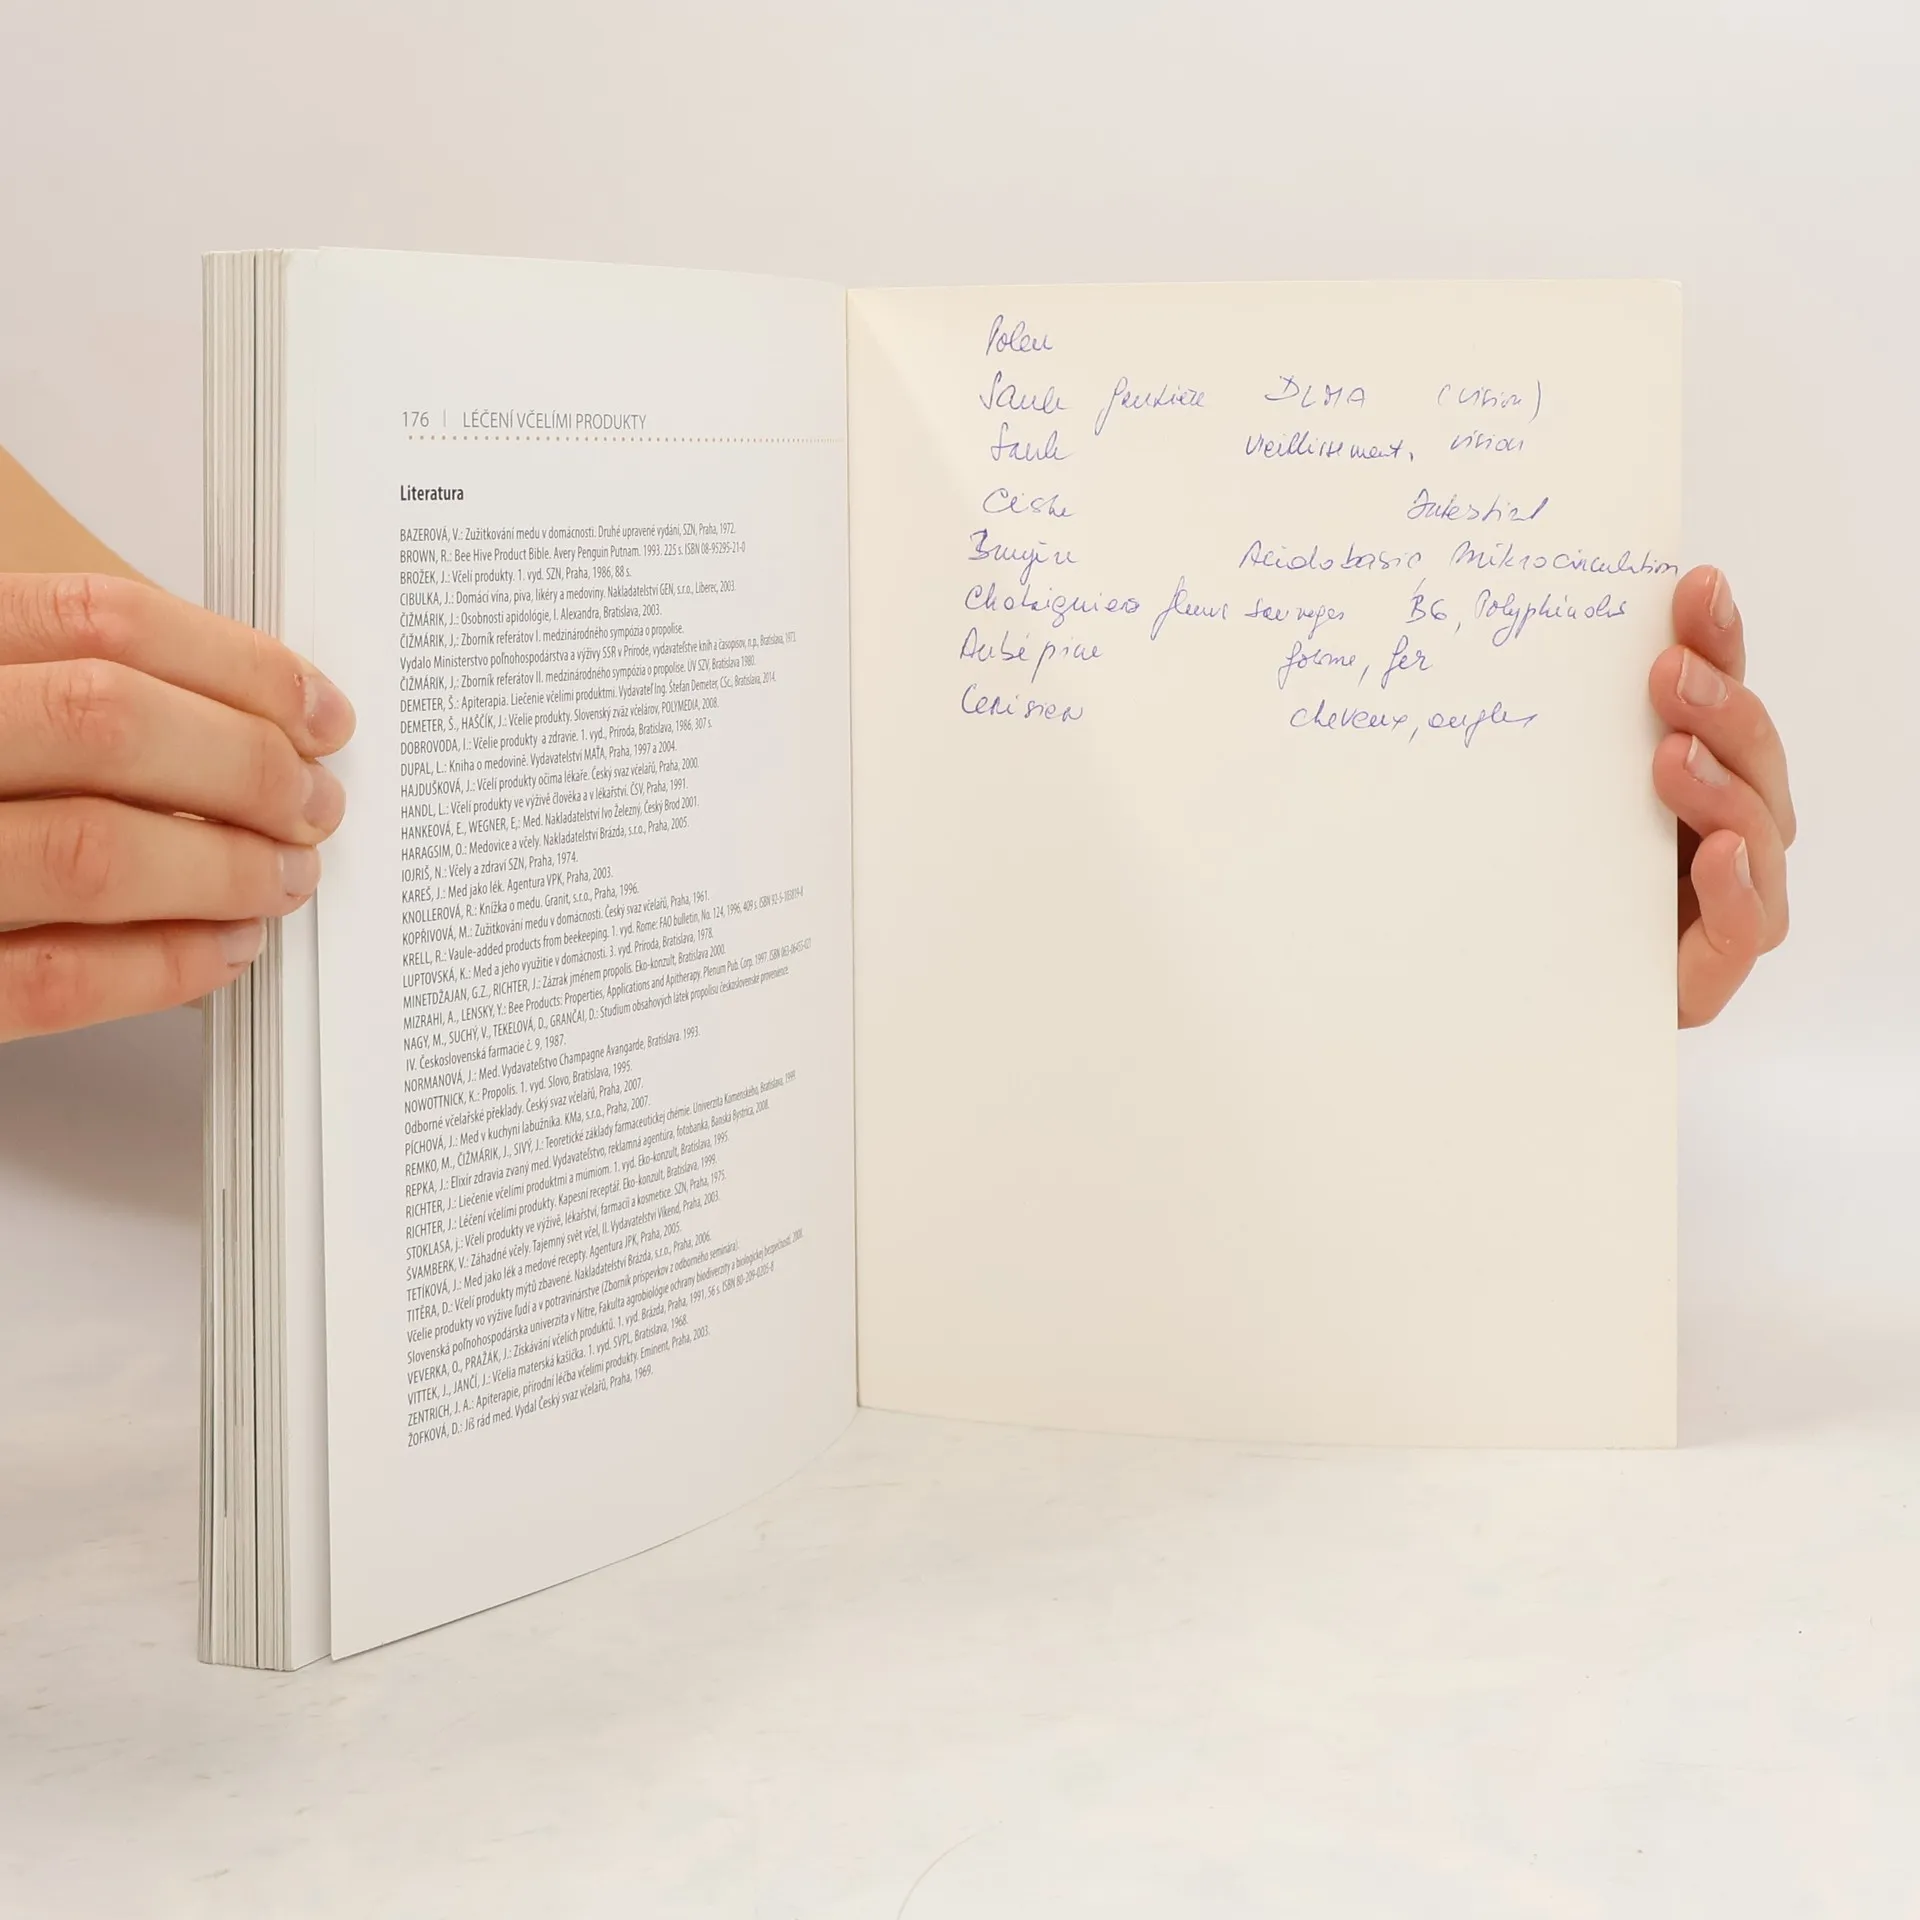 176 | LÉČENÍ VČELÍMI PRODUKTY
Literatura
BAZEROVÁ, V.: Zužitkování medu v domácnosti. Druhé upravené vydání, SZN, Praha, 1972.
BROWN, R.: Bee Hive Product Bible. Avery Penguin Putnam. 1993. 225 s. ISBN 08-95295-21-0
BROŽEK, J.: Včelí produkty. 1. vyd. SZN, Praha, 1986, 88 s.
CIBULKA, J.: Domácí vína, piva, likéry a medoviny. Nakladatelství GEN, s.r.o., Liberec, 2003.
ČIŽMÁRIK, J.: Osobnosti apidológie, I. Alexandra, Bratislava, 2003.
ČIŽMÁRIK, J.: Zborník referátov I. medzinárodného sympózia o propolise.
Vydalo Ministerstvo poľnohospodárstva a výživy SSR v Prírode, vydavateľstve kníh a časopisov, n.p., Bratislava, 1973.
ČIŽMÁRIK, J.: Zborník referátov II. medzinárodného sympózia o propolise. ÚV SZV, Bratislava 1980.
DEMETER, Š.: Apiterapia. Liečenie včelími produktmi. Vydavateľ Ing. Štefan Demeter, CSc., Bratislava, 2014.
DEMETER, Š., HAŠČÍK, J.: Včelie produkty. Slovenský zväz včelárov, POLYMEDIA, 2008.
DOBROVODA, I.: Včelie produkty a zdravie. 1. vyd., Príroda, Bratislava, 1986, 307 s.
DUPAL, L.: Kniha o medovině. Vydavatelství MAŤA, Praha, 1997 a 2004.
HAJDUŠKOVÁ, J.: Včelí produkty očima lékaře. Český svaz včelařů, Praha, 2000.
HANDL, L.: Včelí produkty ve výživě člověka a v lékařství. ČSV, Praha, 1991.
HANKEOVÁ, E., WEGNER, E,: Med. Nakladatelství Ivo Železný, Český Brod 2001.
HARAGSIM, O.: Medovice a včely. Nakladatelství Brázda, s.r.o., Praha, 2005.
IOJRIŠ, N.: Včely a zdraví SZN, Praha, 1974.
KAREŠ, J.: Med jako lék. Agentura VPK, Praha, 2003.
KNOLLEROVÁ, R.: Knížka o medu. Granit, s.r.o., Praha, 1996.
KOPŘIVOVÁ, M.: Zužitkování medu v domácnosti. Český svaz včelařů, Praha, 1961.
KRELL, R.: Vaule-added products from beekeeping. 1. vyd. Rome: FAO bulletin, No. 124, 1996, 409 s.
LUPTOVSKÁ, K.: Med a jeho využitie v domácnosti. 3. vyd. Príroda, Bratislava, 1978.
MINETDŽAJAN, G.Z., RICHTER, J.: Zázrak jménem propolis. Eko-konzult, Bratislava 2000.
MIZRAHI, A., LENSKY, Y.: Bee Products: Properties, Applications and Apitherapy. Plenum Pub. Corp. 1997.
NAGY, M., SUCHÝ, V., TEKELOVÁ, D., GRANČAI, D.: Studium obsahových látek propolisu československé provenience.
IV. Československá farmacie č. 9, 1987.
NORMANOVÁ, J.: Med. Vydavateľstvo Champagne Avangarde, Bratislava. 1993.
NOWOTTNICK, K.: Propolis. 1. vyd. Slovo, Bratislava, 1995.
Odborné včelařské překlady. Český svaz včelařů, Praha, 2007.
PÍCHOVÁ, J.: Med v kuchyni labužníka. KMa, s.r.o., Praha, 2007.
REMKO, M., ČIŽMÁRIK, J., SIVÝ, J.: Teoretické základy farmaceutickej chémie. Univerzita Komenského, Bratislava, 1991.
REPKA, J.: Elixír zdravia zvaný med. Vydavateľstvo, reklamná agentúra, fotobanka, Banská Bystrica, 2008.
RICHTER, J.: Liečenie včelími produktmi a múmiom. 1. vyd. Eko-konzult, Bratislava, 1995.
RICHTER, J.: Léčení včelími produkty. Kapesní receptář. Eko-konzult, Bratislava, 1999.
STOKLASA, j.: Včelí produkty ve výživě, lékařství, farmacii a kosmetice. SZN, Praha, 1975.
ŠVAMBERK, V.: Záhadné včely. Tajemný svět včel, II. Vydavatelství Víkend, Praha, 2003.
TETÍKOVÁ, J.: Med jako lék a medové recepty. Agentura JPK, Praha, 2005.
TITĚRA, D.: Včelí produkty mýtů zbavené. Nakladatelství Brázda, s.r.o., Praha, 2006.
Včelie produkty vo výžive ľudí a v potravinárstve (Zborník príspevkov z odborného seminára).
Slovenská poľnohospodárska univerzita v Nitre, Fakulta agrobiológie ochrany biodiverzity a biologickej bezpečnosti, 2008.
VEVERKA, O., PRAŽÁK, J.: Získávání včelích produktů. 1. vyd. Brázda, Praha, 1991, 56 s. ISBN 80-209-0205-8
VITTEK, J., JANČÍ, J.: Včelia materská kašička. 1. vyd. SVPL, Bratislava, 1968.
ZENTRICH, J. A.: Apiterapie, přírodní léčba včelími produkty. Eminent, Praha, 2003.
ŽOFKOVÁ, D.: Jíš rád med. Vydal Český svaz včelařů, Praha, 1969.
Polen
Saule DLMA (vision)
Saule vieillissement, vision
Ciste Intestinal
Bruyère Acidobasic Mikrocirculation
fleurs sauvages B6, Polyphénols
Aubépine forme, fer
Cerisier cheveux, ongles